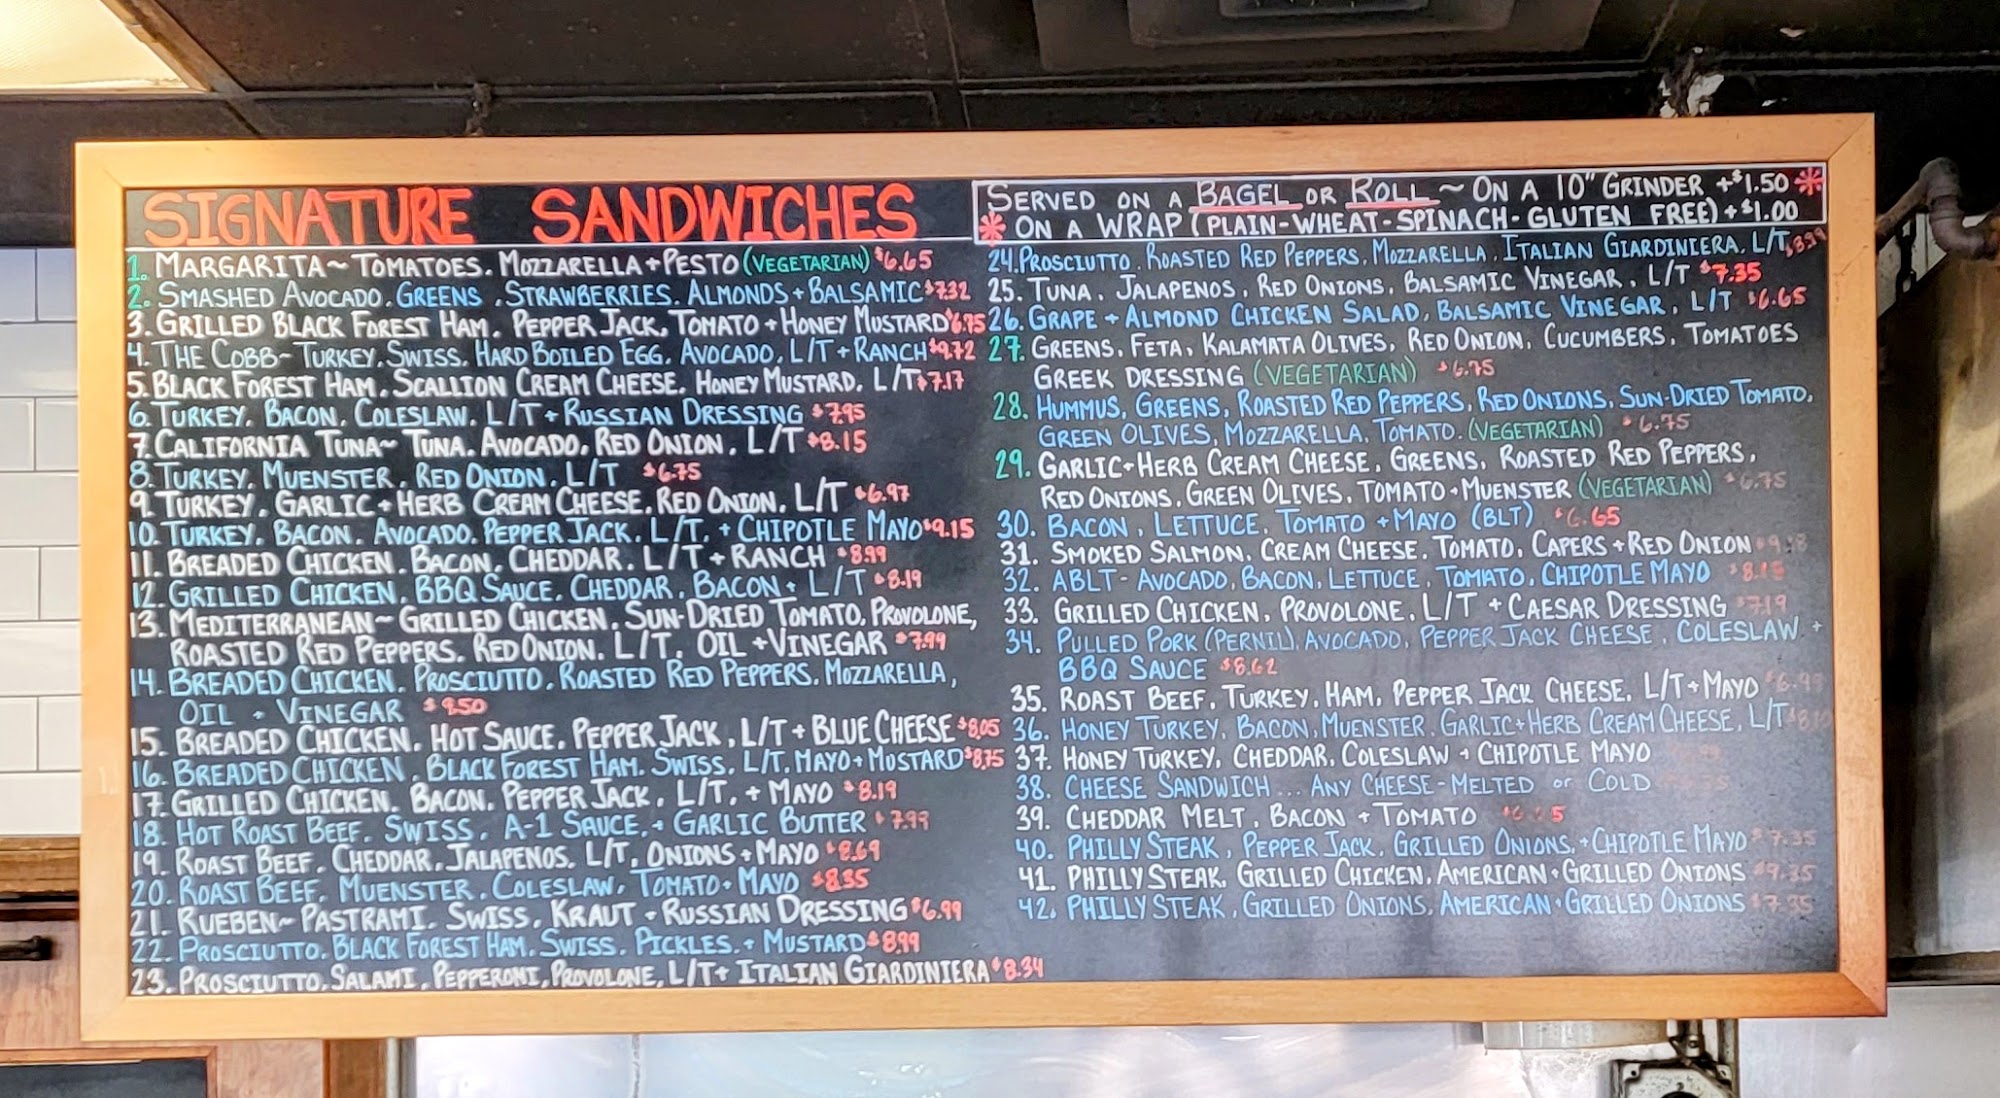 SIGNATURE SANDWICHES
SERVED ON A BAGEL OR ROLL ~ ON A 10" GRINDER +$1.50 *
* ON A WRAP (PLAIN-WHEAT-SPINACH-GLUTEN FREE) +$1.00
1. MARGARITA~ TOMATOES, MOZZARELLA + PESTO (VEGETARIAN) $6.65
2. SMASHED AVOCADO, GREENS, STRAWBERRIES, ALMONDS + BALSAMIC $7.32
3. GRILLED BLACK FOREST HAM, PEPPER JACK, TOMATO + HONEY MUSTARD $6.75
4. THE COBB~ TURKEY, SWISS, HARD BOILED EGG, AVOCADO, L/T + RANCH $9.72
5. BLACK FOREST HAM, SCALLION CREAM CHEESE, HONEY MUSTARD, L/T $7.17
6. TURKEY, BACON, COLESLAW, L/T + RUSSIAN DRESSING $7.95
7. CALIFORNIA TUNA~ TUNA, AVOCADO, RED ONION, L/T $8.15
8. TURKEY, MUENSTER, RED ONION, L/T $6.75
9. TURKEY, GARLIC + HERB CREAM CHEESE, RED ONION, L/T $6.97
10. TURKEY, BACON, AVOCADO, PEPPER JACK, L/T, + CHIPOTLE MAYO $9.15
11. BREADED CHICKEN, BACON, CHEDDAR, L/T + RANCH $8.99
12. GRILLED CHICKEN, BBQ SAUCE, CHEDDAR, BACON + L/T $8.19
13. MEDITERRANEAN~ GRILLED CHICKEN, SUN-DRIED TOMATO, PROVOLONE,
ROASTED RED PEPPERS, RED ONION, L/T, OIL + VINEGAR $7.99
14. BREADED CHICKEN, PROSCIUTTO, ROASTED RED PEPPERS, MOZZARELLA,
OIL + VINEGAR $9.50
15. BREADED CHICKEN, HOT SAUCE, PEPPER JACK, L/T + BLUE CHEESE $8.05
16. BREADED CHICKEN, BLACK FOREST HAM, SWISS, L/T, MAYO + MUSTARD $8.75
17. GRILLED CHICKEN, BACON, PEPPER JACK, L/T, + MAYO $8.19
18. HOT ROAST BEEF, SWISS, A-1 SAUCE, + GARLIC BUTTER $7.99
19. ROAST BEEF, CHEDDAR, JALAPENOS, L/T, ONIONS + MAYO $8.69
20. ROAST BEEF, MUENSTER, COLESLAW, TOMATO + MAYO $8.35
21. RUEBEN~ PASTRAMI, SWISS, KRAUT + RUSSIAN DRESSING $6.99
22. PROSCIUTTO, BLACK FOREST HAM, SWISS, PICKLES, + MUSTARD $8.99
23. PROSCIUTTO, SALAMI, PEPPERONI, PROVOLONE, L/T + ITALIAN GIARDINIERA $8.34
24. PROSCIUTTO, ROASTED RED PEPPERS, MOZZARELLA, ITALIAN GIARDINIERA, L/T,
25. TUNA, JALAPENOS, RED ONIONS, BALSAMIC VINEGAR, L/T $7.35
26. GRAPE + ALMOND CHICKEN SALAD, BALSAMIC VINEGAR, L/T $6.65
27. GREENS, FETA, KALAMATA OLIVES, RED ONION, CUCUMBERS, TOMATOES
GREEK DRESSING (VEGETARIAN) $6.75
28. HUMMUS, GREENS, ROASTED RED PEPPERS, RED ONIONS, SUN-DRIED TOMATO,
GREEN OLIVES, MOZZARELLA, TOMATO, (VEGETARIAN) $6.75
29. GARLIC + HERB CREAM CHEESE, GREENS, ROASTED RED PEPPERS,
RED ONIONS, GREEN OLIVES, TOMATO + MUENSTER (VEGETARIAN) $6.75
30. BACON, LETTUCE, TOMATO + MAYO (BLT) $6.65
31. SMOKED SALMON, CREAM CHEESE, TOMATO, CAPERS + RED ONION
32. ABLT - AVOCADO, BACON, LETTUCE, TOMATO, CHIPOTLE MAYO $8.15
33. GRILLED CHICKEN, PROVOLONE, L/T + CAESAR DRESSING $7.19
34. PULLED PORK (PERNIL), AVOCADO, PEPPER JACK CHEESE, COLESLAW +
BBQ SAUCE $8.62
35. ROAST BEEF, TURKEY, HAM, PEPPER JACK CHEESE, L/T + MAYO
36. HONEY TURKEY, BACON, MUENSTER, GARLIC + HERB CREAM CHEESE, L/T
37. HONEY TURKEY, CHEDDAR, COLESLAW + CHIPOTLE MAYO
38. CHEESE SANDWICH... ANY CHEESE - MELTED or COLD
39. CHEDDAR MELT, BACON + TOMATO
40. PHILLY STEAK, PEPPER JACK, GRILLED ONIONS, + CHIPOTLE MAYO $7.35
41. PHILLY STEAK, GRILLED CHICKEN, AMERICAN + GRILLED ONIONS $9.35
42. PHILLY STEAK, GRILLED ONIONS, AMERICAN + GRILLED ONIONS $7.35